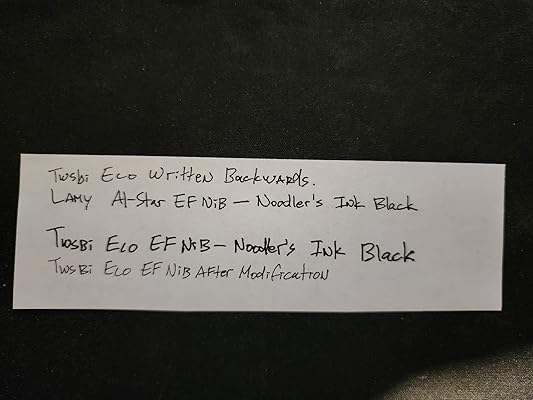 Twsbi Eco Written Backwards.
LAMY Al-Star EF NiB — Noodler's Ink Black
Twsbi Eco EF NiB — Noodler's Ink Black
Twsbi Eco EF NiB After Modification